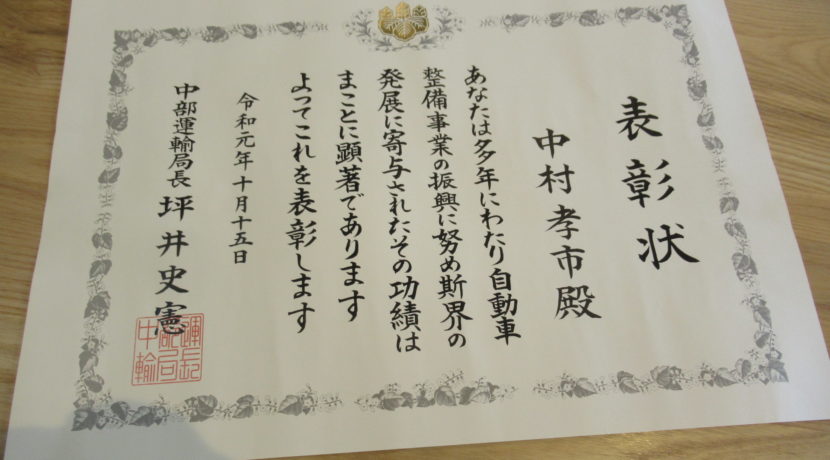 表彰状
中村孝市殿
あなたは多年にわたり自動車
整備事業の振興に努め斯界の
発展に寄与されたその功績は
まことに顕著であります
よってこれを表彰します
令和元年十月十五日
中部運輸局長 坪井史憲